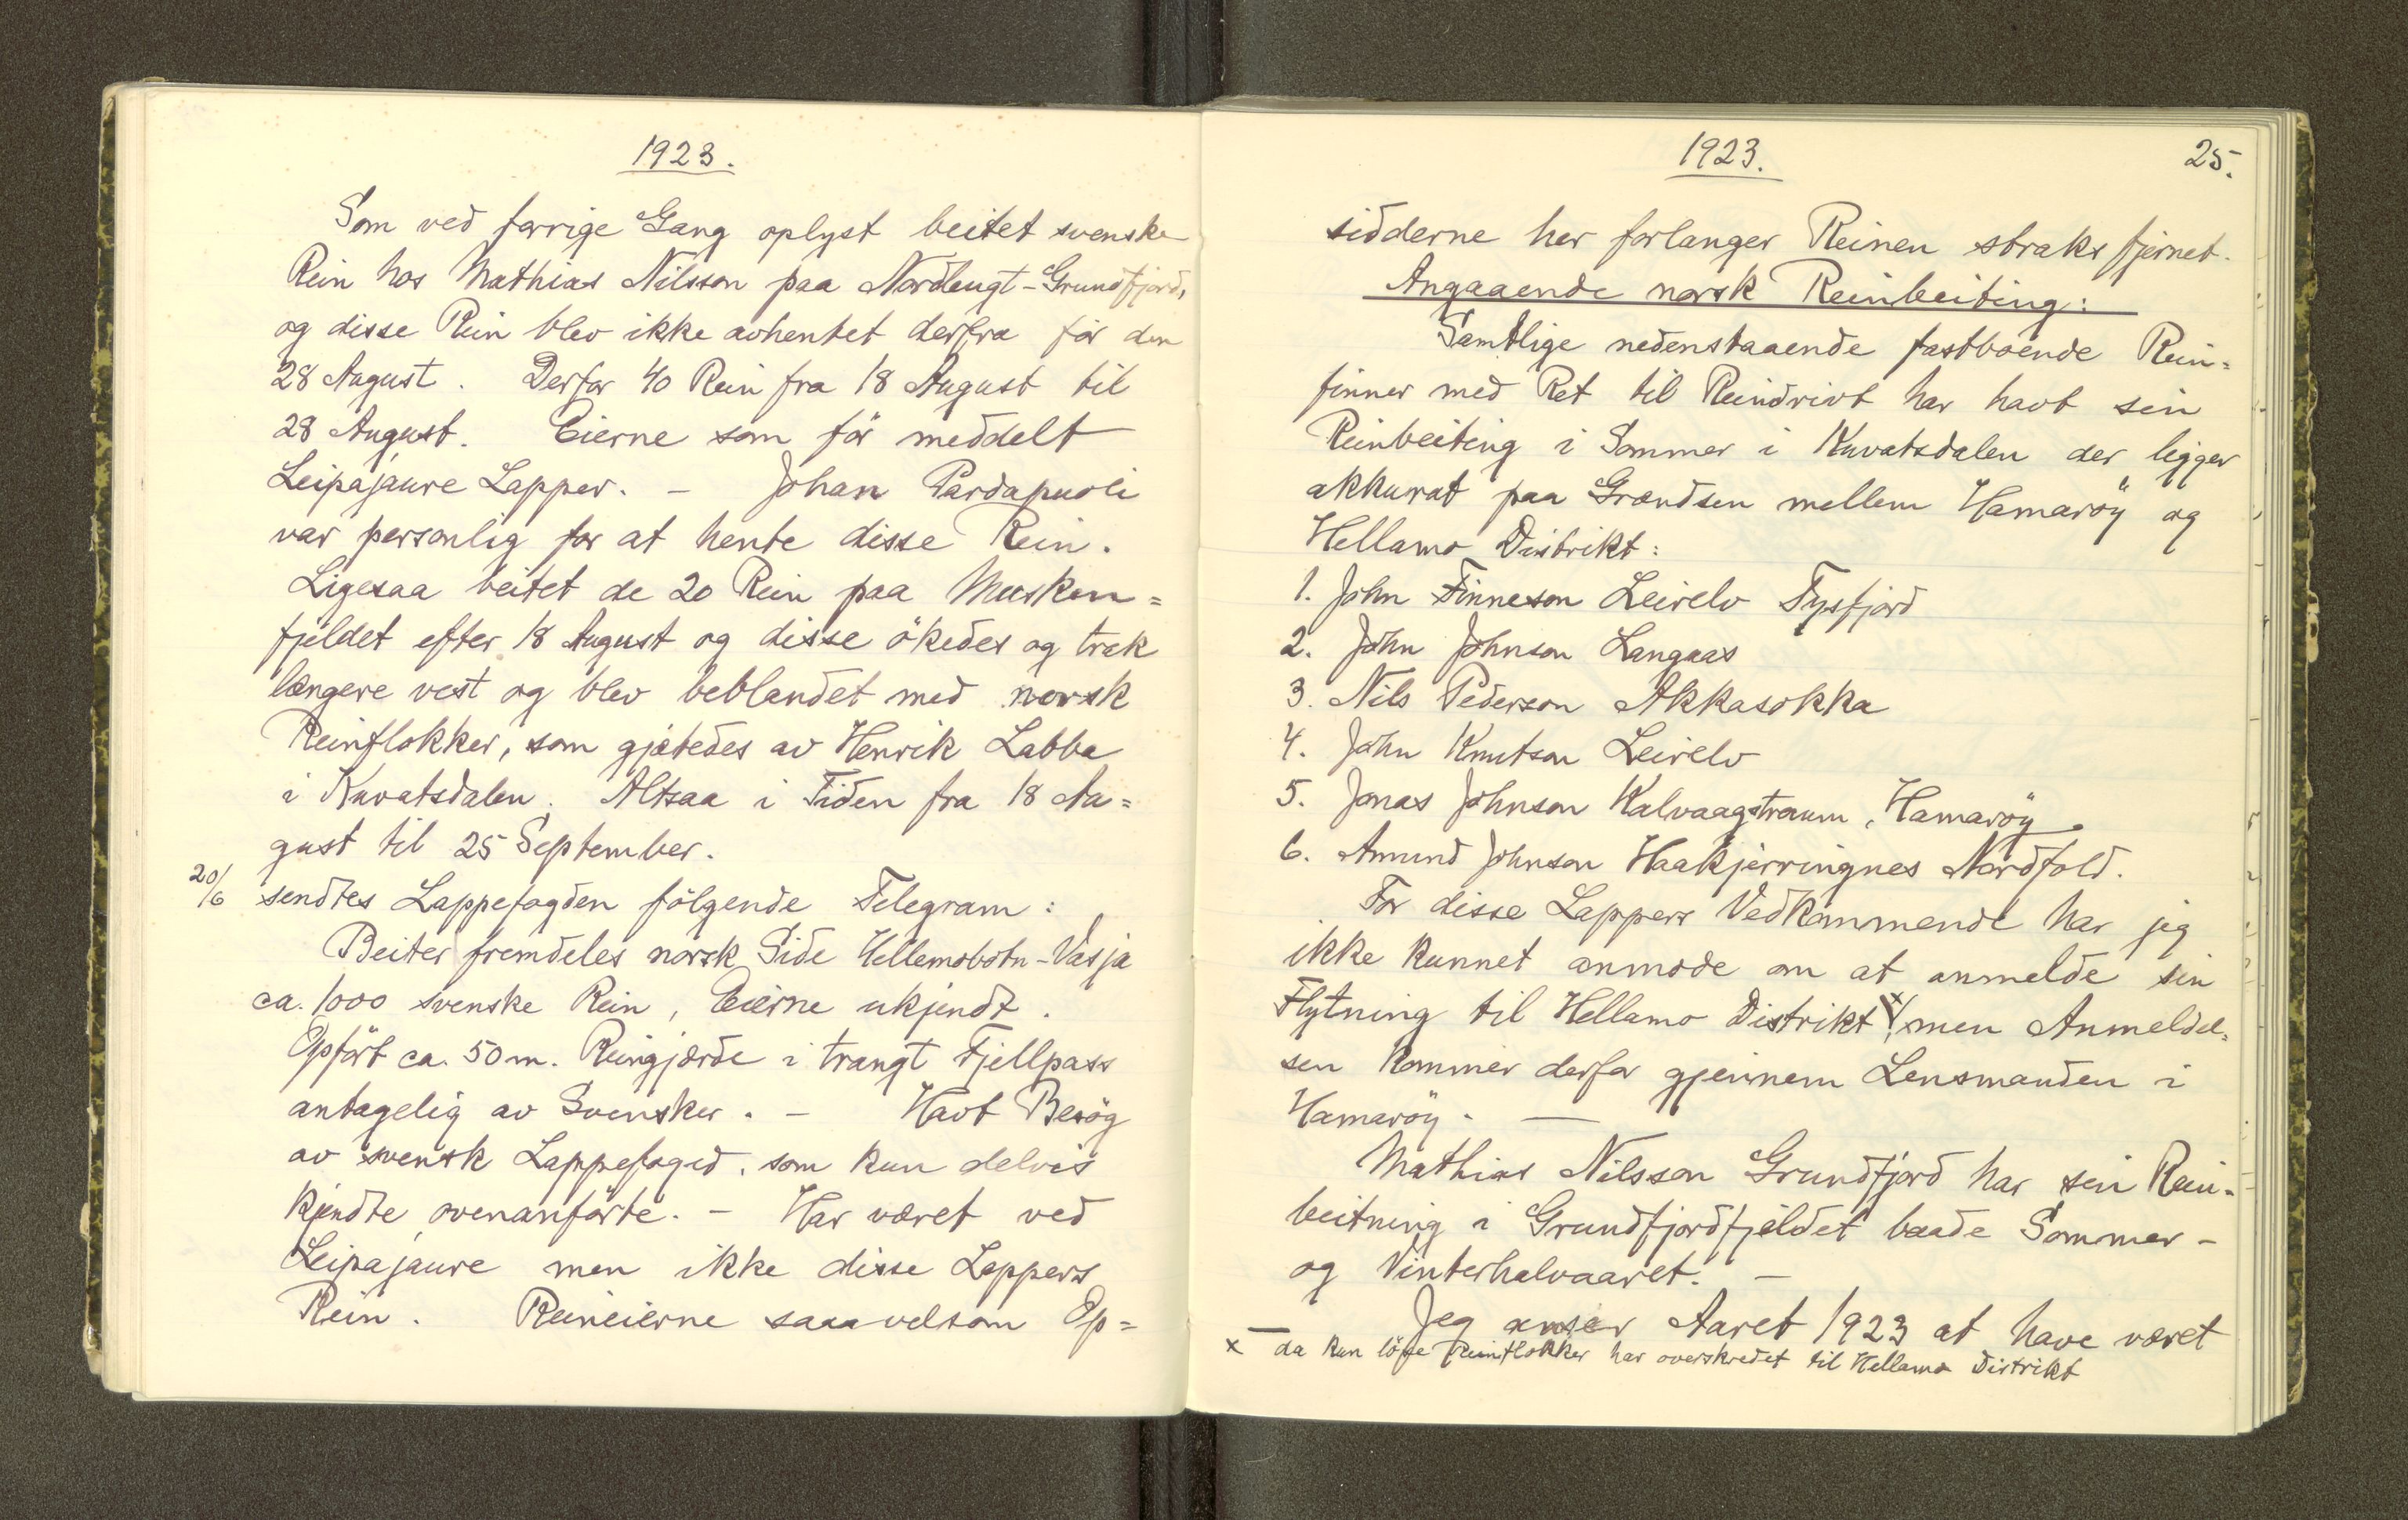 1923.
Som ved forrige Gang oplyst beitet svenske
Rein hos Mathias Nilsson paa Nordbugt-Grundfjord,
og disse Rein blev ikke avhentet derfra før den
28 August. Derfor 40 Rein fra 18 August til
28 August. Eierne som før meddelt
Leipajaure Lapper. - Johan Pardapuoli
var personlig for at hente disse Rein.
Ligesaa beitet de 20 Rein paa Musken=
fjeldet efter 18 August og disse ökedes og trak
længere vest og blev beblandet med norsk
Reinflokker, som gjætedes av Henrik Labba
i Kuvatsdalen. Altsaa i Tiden fra 18 Au=
gust til 25 September.
20/6 sendtes Lappefogden fölgende Telegram:
Beiter fremdeles norsk Side Hellemobotn-Vasja
ca. 1000 svenske Rein, Eierne ukjendt.
Opfört ca. 50 m. Reingjærde i trangt Fjellpass
antagelig av Svensker. - Havt Besög
av svensk Lappefoged, som kun delvis
kjendte ovenanförte. - Har været ved
Leipajaure men ikke disse Lappers
Rein. Reineierne saaavelsom Op=
1923.
25.
sidderne her forlanger Reinen straks fjernet.
Angaaende norsk Reinbeiting:
Samtlige nedenstaaende fastboende Rein=
finner med Ret til Reindrivt har havt sin
Reinbeiting i Sommer i Kuvatsdalen der ligger
akkurat paa Grændsen mellem Hamaröÿ og
Hellamo Distrikt:
1. John Finneson Leirelv Tysfjord
2. John Johnson Langaas
3. Nils Pederson Akkasokka
4. John Knutson Leirelv
5. Jonas Johnson Kalvaagstraum, Hamaröÿ
6. Amund Johnson Haakjerringnes Nordfold.
For disse Lappers Vedkommende har jeg
ikke kunnet anmode om at anmelde sin
Flytning til Hellamo Distrikt x, men Anmeldel=
sen kommer derfor gjennem Lensmanden i
Hamaröy. -
Mathias Nilsson Grundfjord har sin Rein=
beitning i Grundfjordfjeldet baade Sommer-
og Vinterhalvaaret. -
Jeg anser Aaret 1923 at have været
x da kun löse Reinflokker har overskredet til Hellamo Distrikt